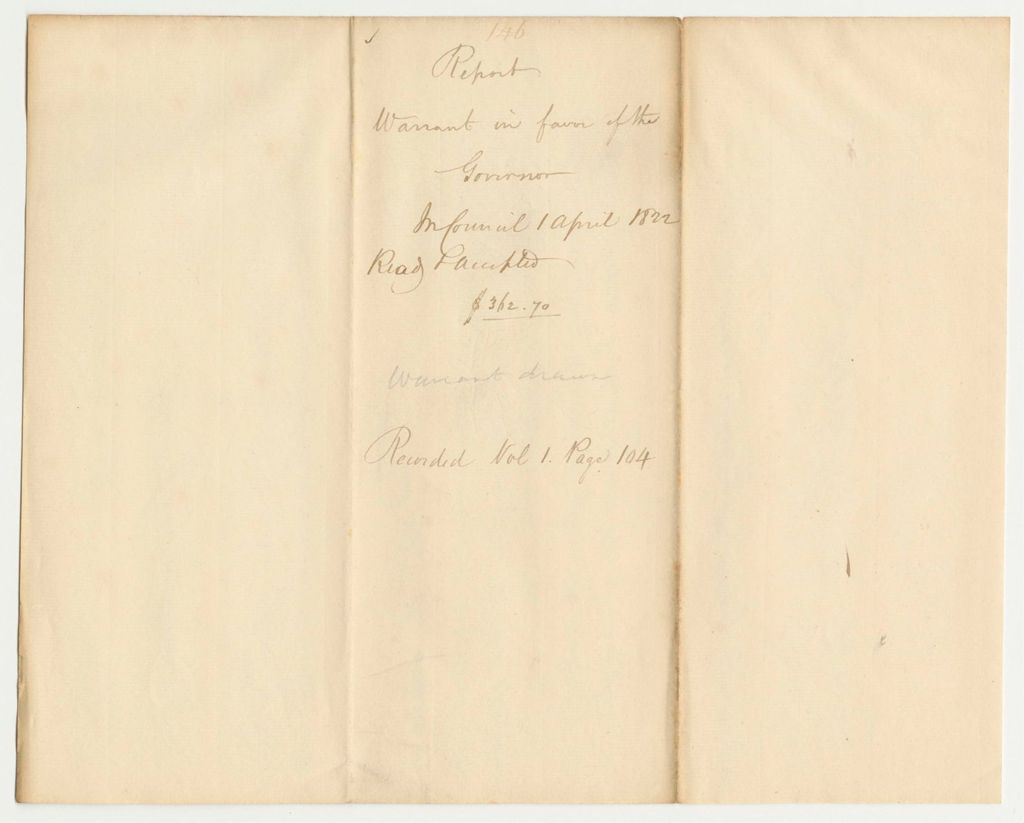 146
Report
Warrant in favor of the
Governor
In Council 1 April 1822
Read & Accepted
$362.70
Warrant drawn
Recorded Vol 1. Page 104